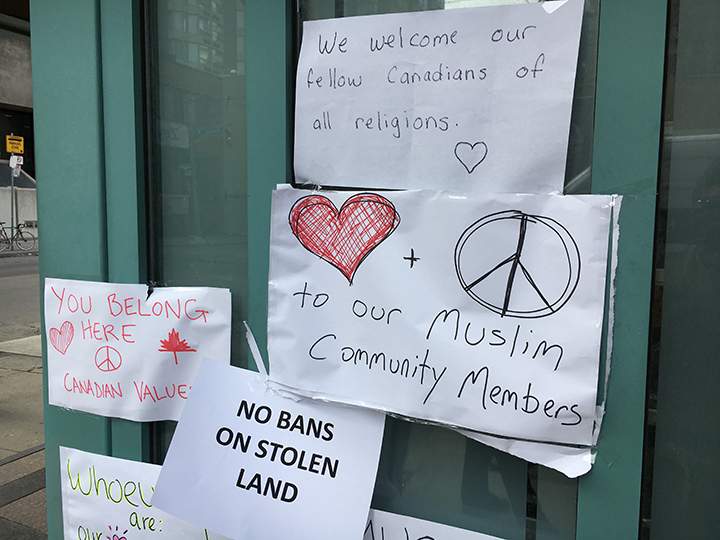 We welcome our
fellow Canadians of
all religions.
+
to our Muslim
Community Members
YOU BELONG
HERE
CANADIAN
NO BANS
ON STOLEN
LAND
are:
our